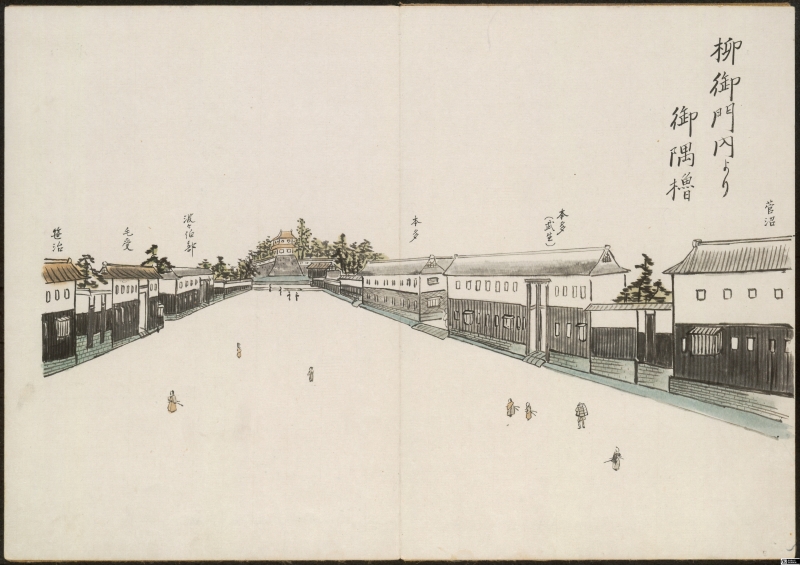 柳御門内より
御隅櫓
菅沼
本多
(武生)
本多
波々伯部
毛受
笹治